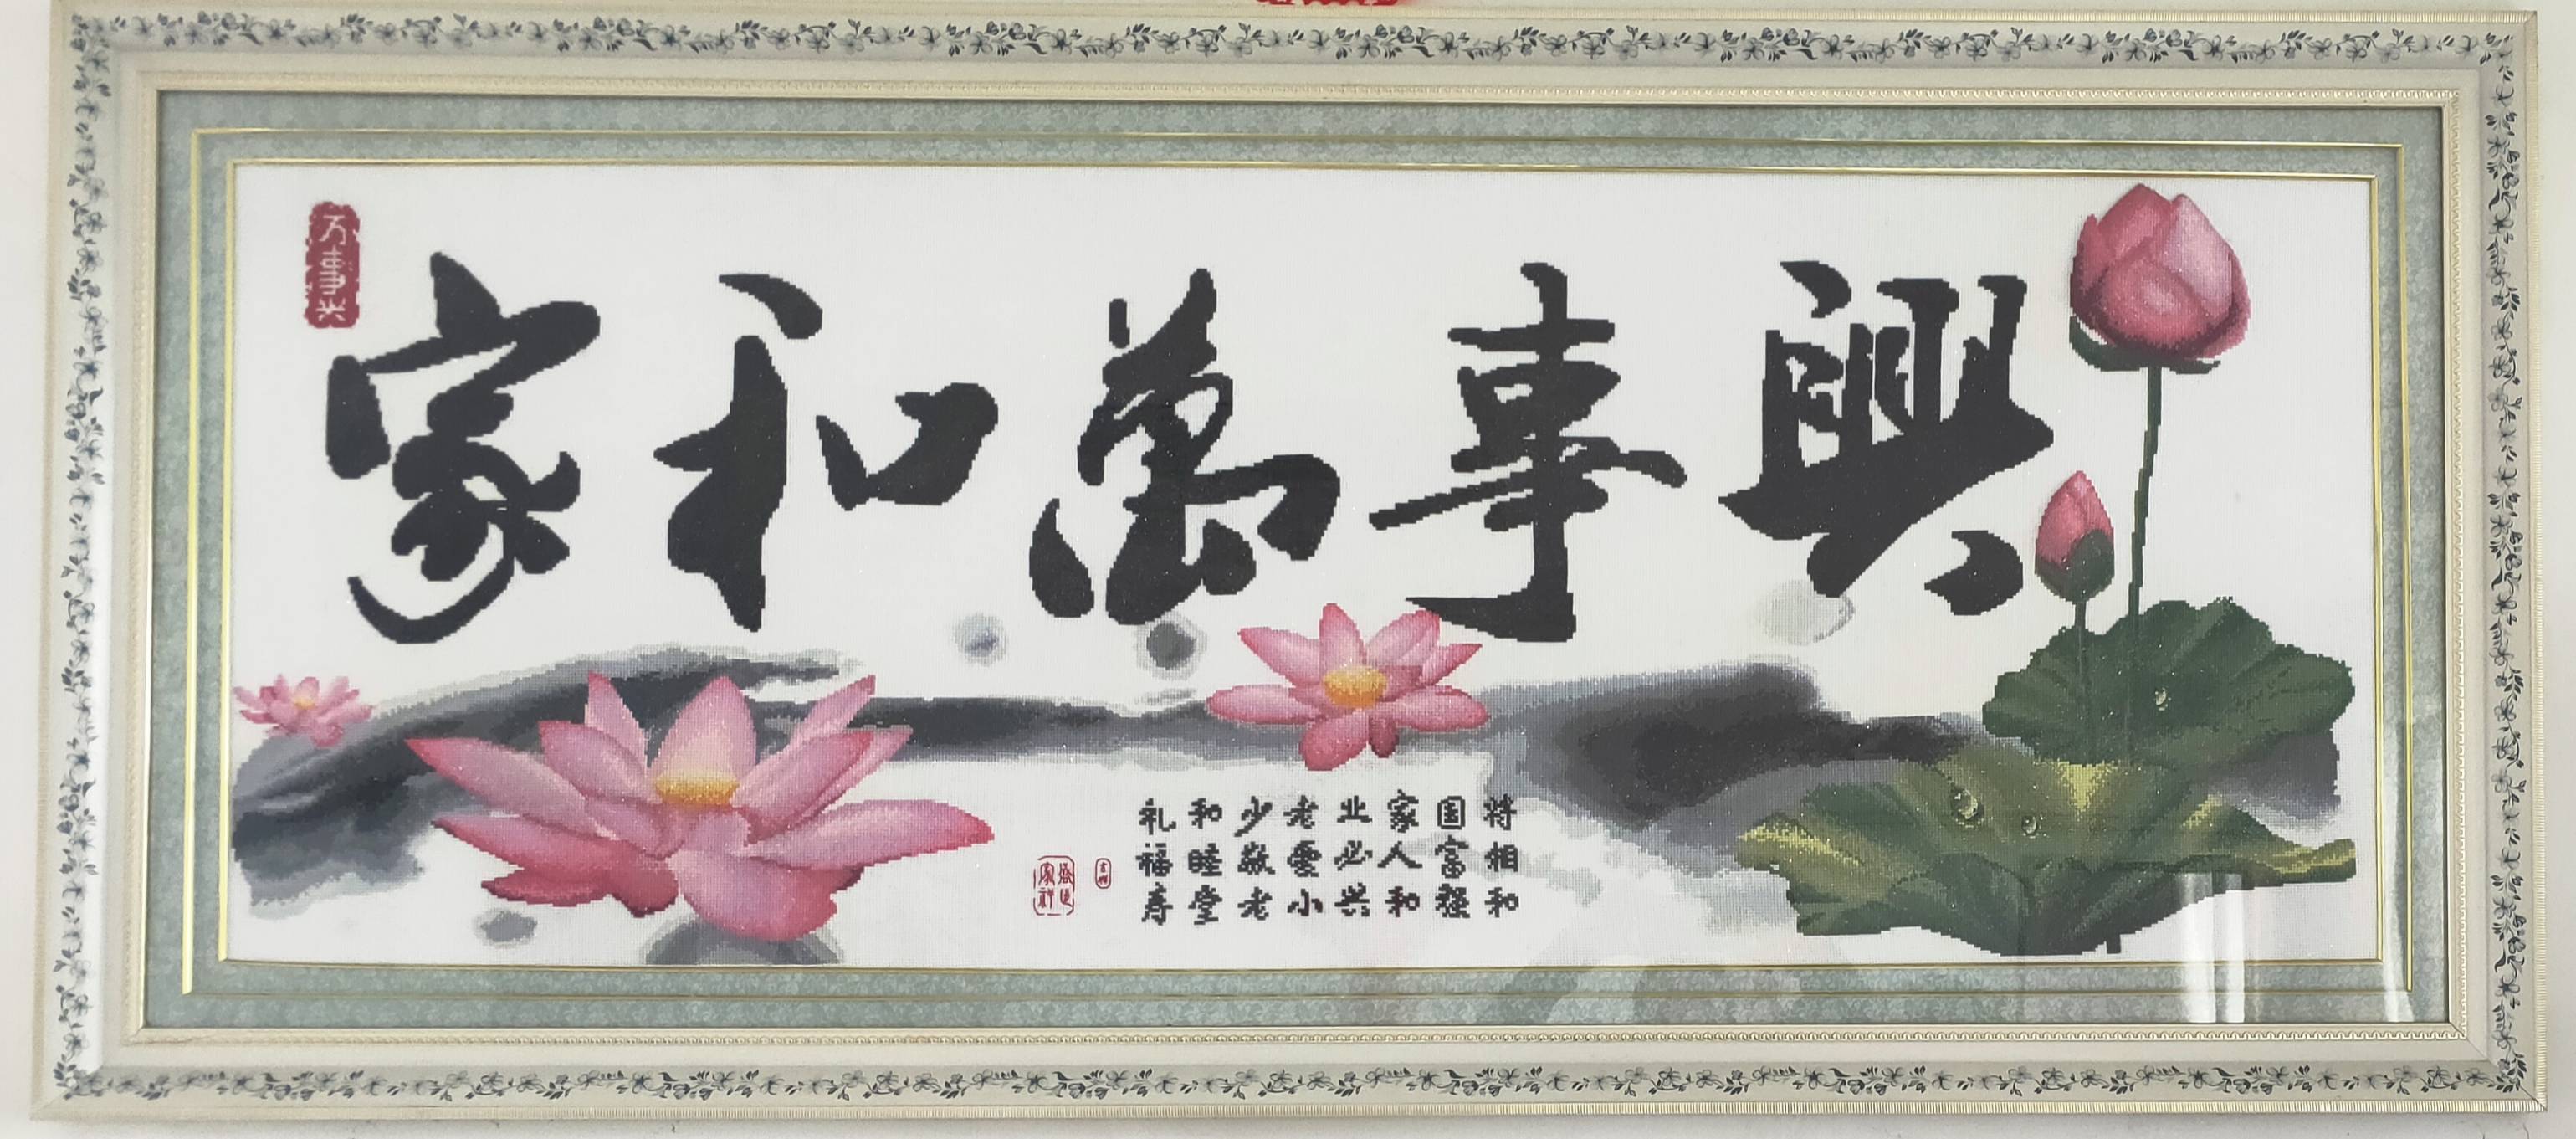 万事兴
家和萬事興
将相和
国富强
家人和
业必兴
老爱小
少敬老
和睦堂
礼福寿